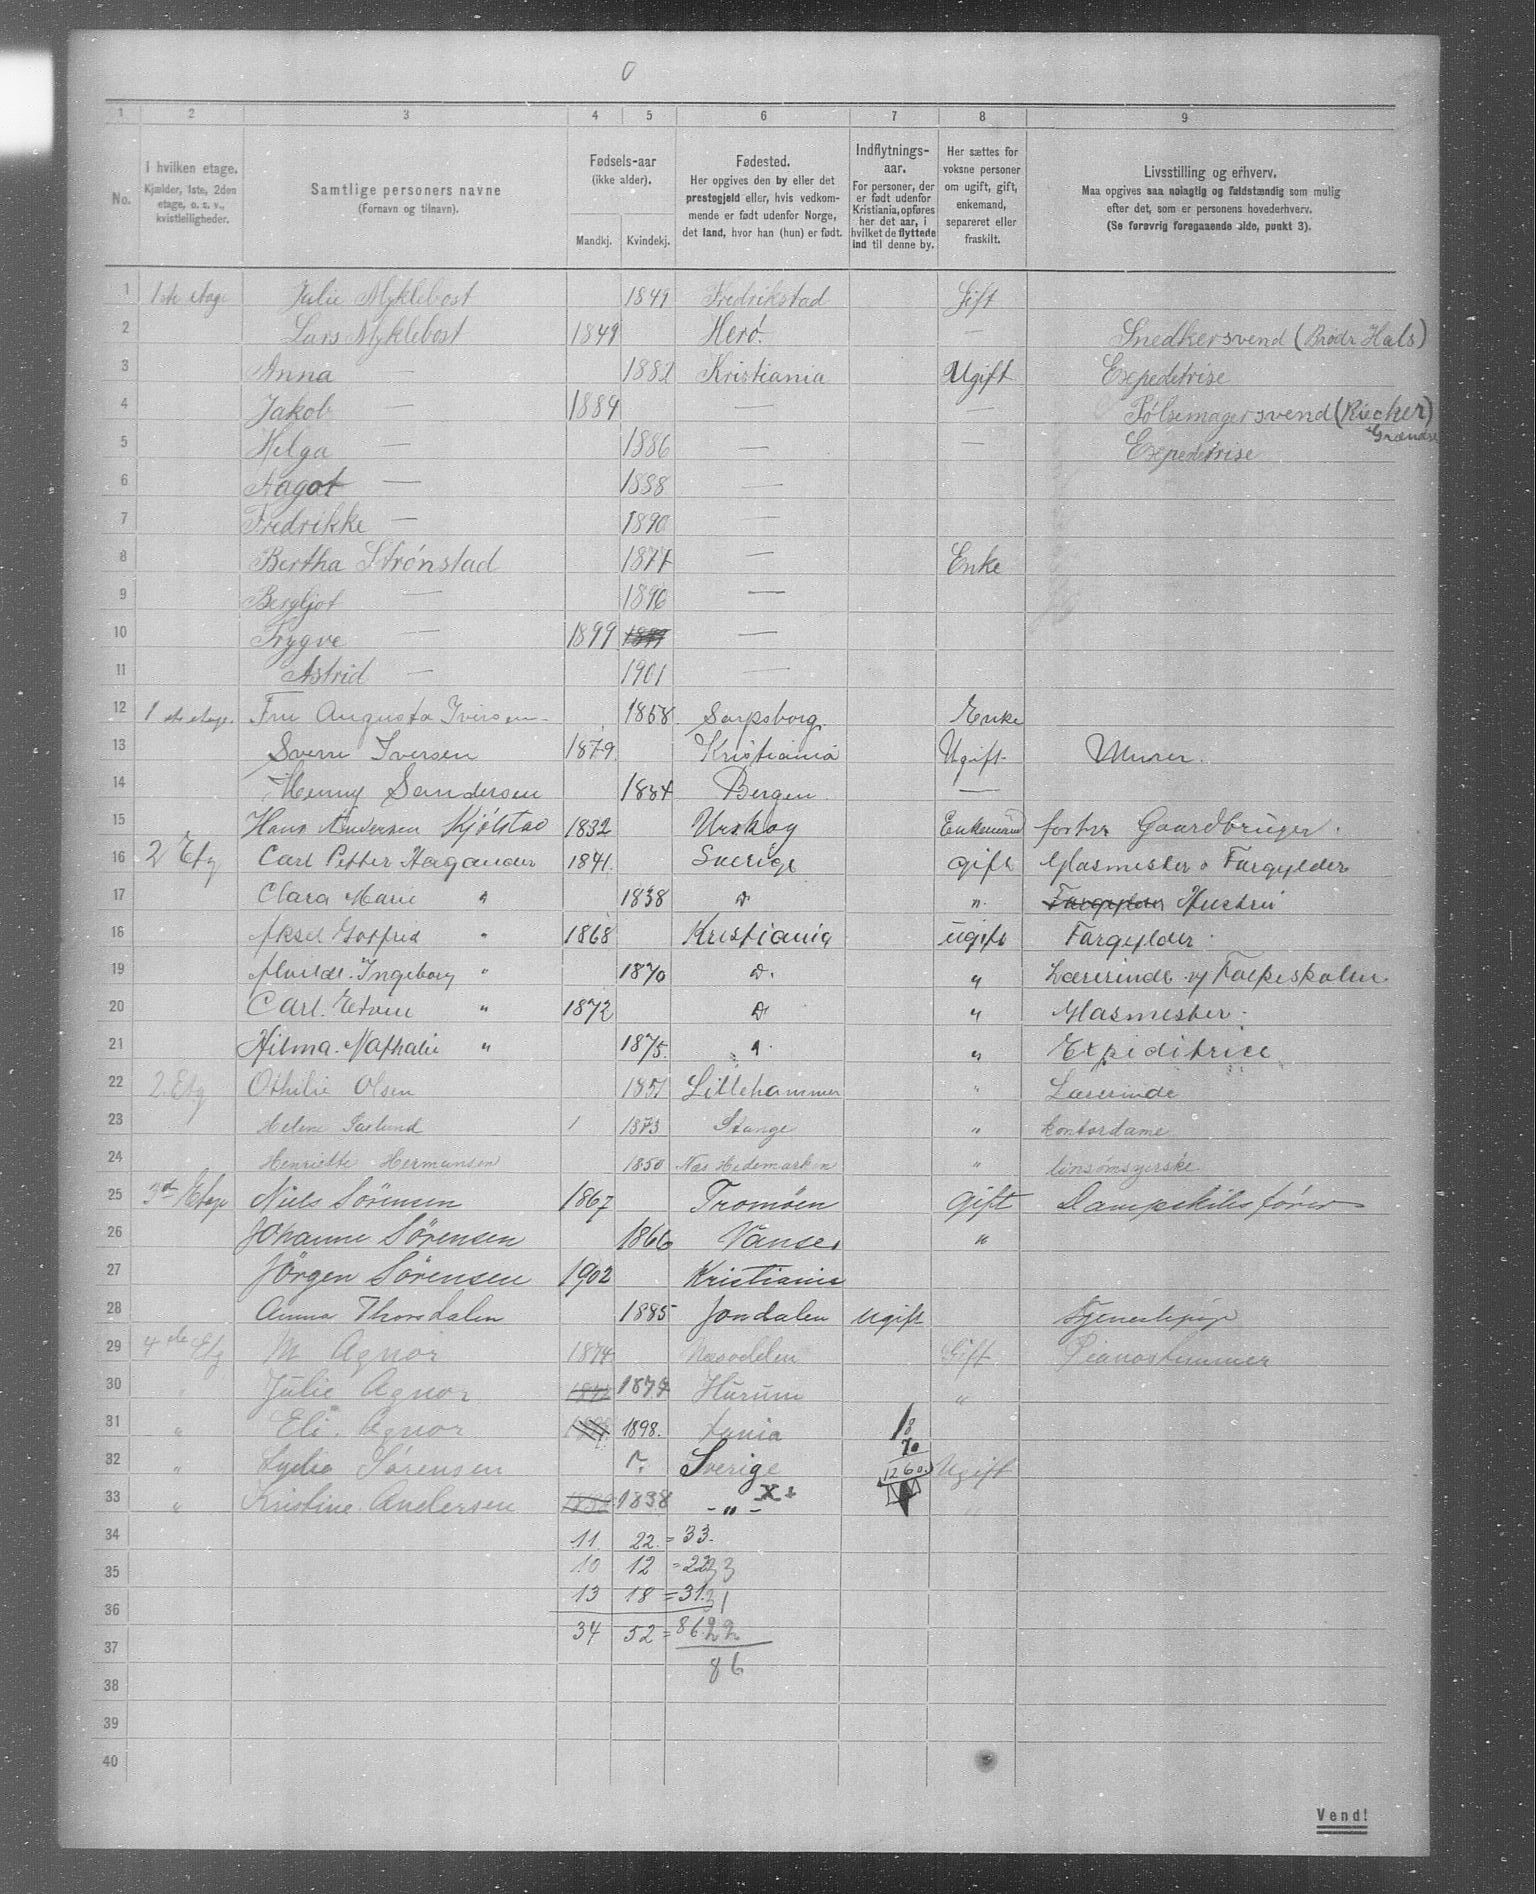 0
1 2 3 4 5 6 7 8 9
No.
I hvilken etage.
Kjælder, 1ste, 2den etage, o. s. v., kvistleiligheder.
Samtlige personers navne
(Fornavn og tilnavn).
Fødsels-aar
(ikke alder).
Mandkj. Kvindekj.
Fødested.
Her opgives den by eller det prestegjeld eller, hvis vedkommende er født udenfor Norge, det land, hvor han (hun) er født.
Indflytnings-aar.
For personer, der er født udenfor Kristiania, opføres her det aar, i hvilket de flyttede ind til denne by.
Her sættes for voksne personer om ugift, gift, enkemand, separeret eller fraskilt.
Livsstilling og erhverv.
Maa opgives saa nøiagtig og fuldstændig som mulig efter det, som er personens hovederhverv.
(Se forøvrig foregaaende side, punkt 3).
1 1ste etage Julie Myklebost 1849 Fredrikstad Gift
2 Lars Myklebost 1849 Herö. — Snedkersvend (Brødr Hals)
3 Anna — 1882 Kristiania Ugift Expeditrise
4 Jakob — 1884 — — Pølsemagersvend (Riecher)
Grændse
5 Helga — 1886 — — Expeditrise
6 Aagot — 1888 —
7 Fredrikke — 1890 —
8 Bertha Strønstad 1877 — Enke
9 Bergljot — 1896 —
10 Trygve — 1899 —
11 Astrid — 1901 —
12 1ste etage. Fru Augusta Iversen 1858 Sarpsborg. Enke
13 Sverre Iversen 1879. Kristiania Ugift. Murer.
14 Henny Sandersen 1884 Bergen. —
15 Hans Andersen Kjølstad 1832 Urskog Enkemand forhv Gaardbruger.
16 2 Etg Carl Petter Hagander 1841. Sverige gift Glasmester o Fargylder
17 Clara Marie " 1838 Do " Fargylder Hustru
18 Aksel Gotfred " 1868 Kristiania ugift Fargylder.
19 Alvilde. Ingeborg " 1870 D. " Lærerinde v/ Folkeskolen
20 Carl. Edvin " 1872 D " Glasmester.
21 Hilma. Nathalie " 1875. " " Expiditrice
22 2. Etg Othilie Olsen 1851 Lillehammer " Lærerinde
23 Helene 1 1873 Stange " kontordame
24 Henriette Hermansen 1850 Næs Hedemarken " linsømsyerske
25 3d Etage Niels Sörensen 1867 Tromöen gift Dampskibsfører
26 Johanne Sörensen 1866 Vanse. "
27 Jörgen Sörensen 1902 Kristiania
28 Anna Thorsdalen 1885 Jondalen Ugift Tjenestepige
29 4de Etg M Agnor 1874 Næsodden Gift Pianostemmer
30 " Julie Agnor 1872 1874 Hurum "
31 " Eli. Agnor 1898. Xania 18
70
32 " Lydia Sørensen ?. Sverige 1260. Ugift
33 " Kristine Andersen 1838 1838 - " - X "
34 11. 22. = 33.
35 10 12 = 22 33
36 13 18 = 31. 31
37 34 52 = 86. 22
86
38
39
40
Vend!